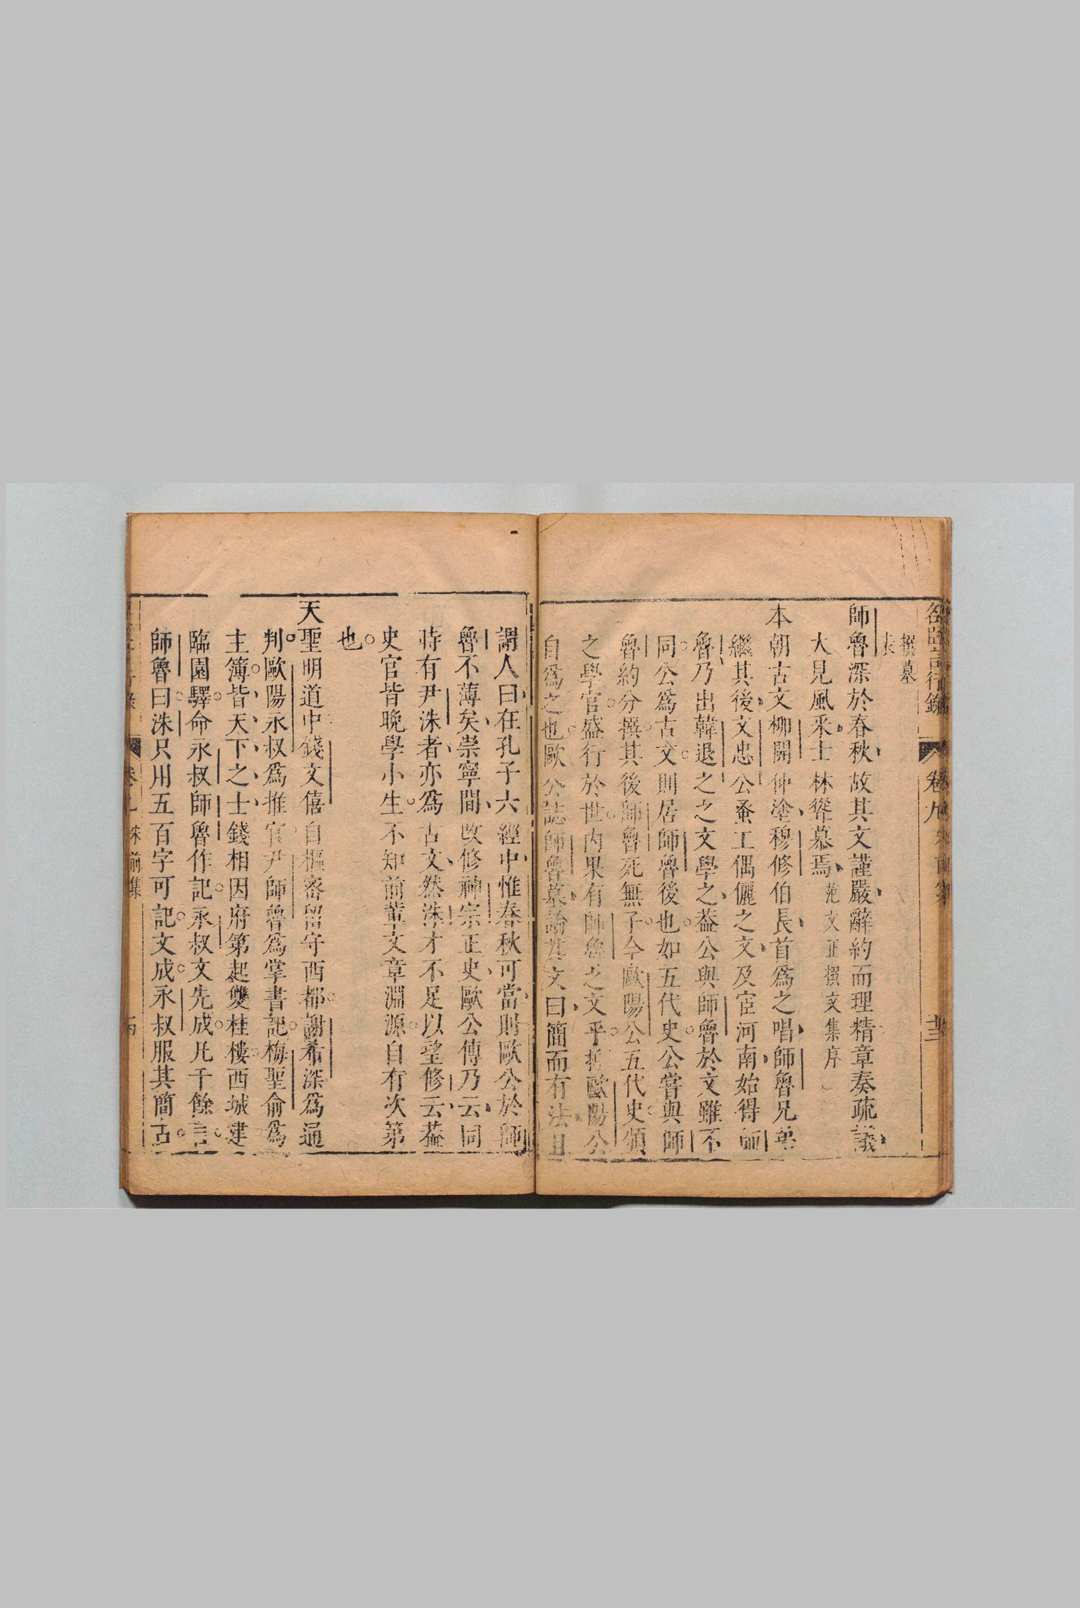 名臣言行錄
卷九
宋前集
十三
撰墓
表
師魯深於春秋故其文謹嚴辭約而理精章奏疏議
大見風采士林聳慕焉范文正撰文集序
本朝古文柳開仲塗穆修伯長首爲之唱師魯兄弟
繼其後文忠公蚤工偶儷之文及宦河南始得師
魯乃出韓退之之文學之葢公與師魯於文雖不
同公爲古文則居師魯後也如五代史公嘗與師
魯約分撰其後師魯死無子今歐陽公五代史頒
之學官盛行於世內果有師魯之文乎抑歐陽公
自爲之也歐公誌師魯墓論其文曰簡而有法且
謂人曰在孔子六經中惟春秋可當則歐公於師
魯不薄矣崇寧間改修神宗正史歐公傳乃云同
時有尹洙者亦爲古文然洙才不足以望修云葢
史官皆晚學小生不知前輩文章淵源自有次第
也
天聖明道中錢文僖自樞密留守西都謝希深爲通
判歐陽永叔爲推官尹師魯爲掌書記梅聖俞爲
主簿皆天下之士錢相因府第起雙桂樓西城建
臨園驛命永叔師魯作記永叔文先成凡千餘言
師魯曰洙只用五百字可記文成永叔服其簡古
宋前集